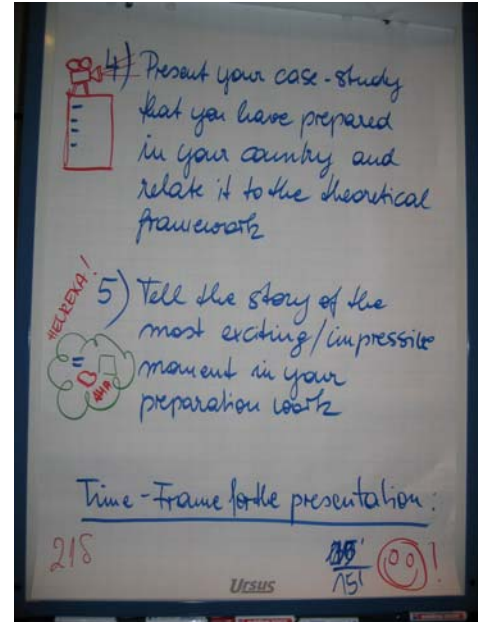 4) Present your case-study
that you have prepared
in your country and
relate it to the theoretical
framework
HEUREKA!
5) Tell the story of the
most exciting/impressive
moment in your
preparation work
=
AHA
Time-Frame for the presentation:
218
15'
!
Ursus